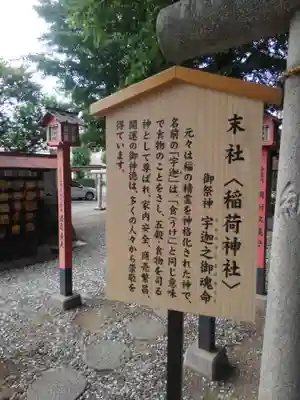 末社〈稲荷神社〉
御祭神 宇迦之御魂命
元々は稲の精霊を神格化された神で、
名前の「宇迦」は、「食（うけ）」と同じ意味
で食物のことをさし、五穀・食物を司る
神として尊ばれ、家内安全、商売繁昌、
開運の御神徳は、多くの人々から崇敬を
得ています。